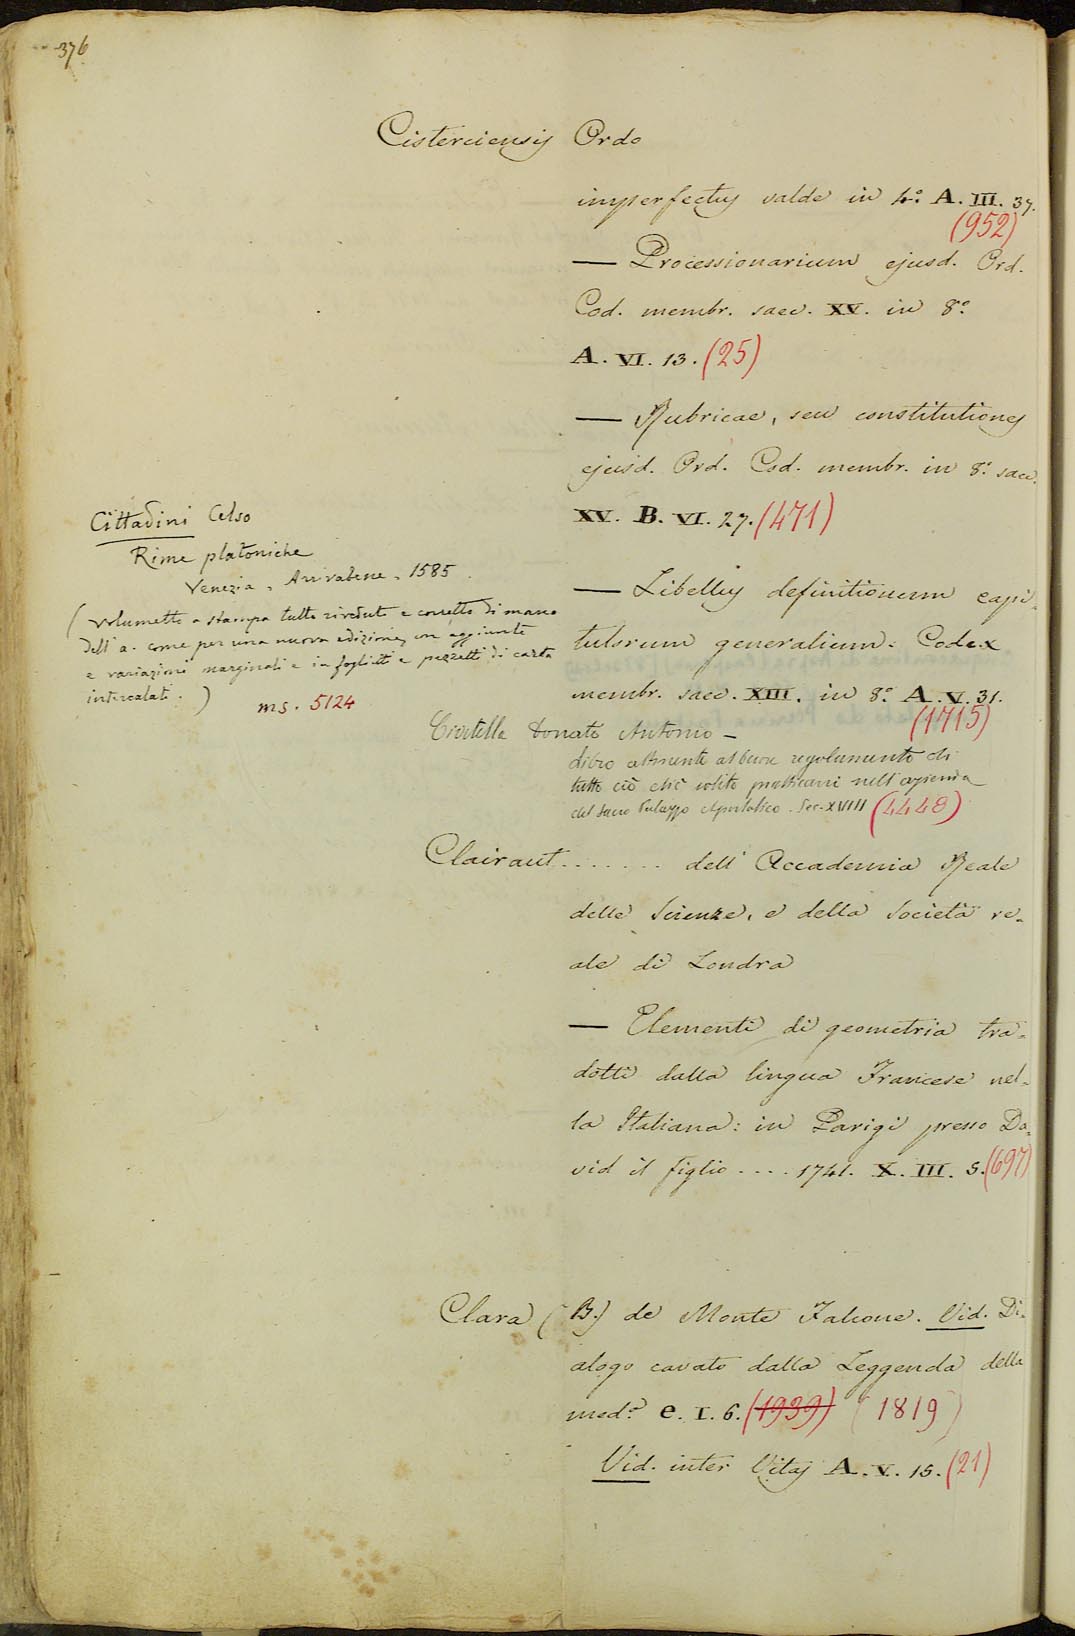 376
Cisterciensis Ordo
imperfectus valde in 4.º A. III. 37.
(952)
— Processionarium ejusd. Ord.
Cod. membr. saec. XV. in 8.º
A. VI. 13. (25)
— Rubricae, seu constitutiones
ejusd. Ord. Cod. membr. in 8.º saec.
XV. B. VI. 27. (471)
— Libellus definitionum capi-
tulorum generalium. Codex
membr. saec. XIII. in 8.º A. V. 31.
(1715)
Cittadini Celso
Rime platoniche
Venezia, Arrivabene, 1585.
(volumetto a stampa tutto riveduto e corretto di mano
dell'a. come per una nuova edizione, con aggiunte
e variazioni marginali e in foglietti e pezzetti di carta
intercalati.)
ms. 5124
Donato Antonio —
Libro attinente al buon regolamento di
tutto ciò ch'è solito pratticarsi nell'azienda
del Sacro Palazzo Apostolico. Sec. XVIII (4448)
Clairaut....... dell' Accademia Reale
delle Scienze, e della Società re-
ale di Londra
— Elementi di geometria tra-
dotti dalla lingua Francese nel-
la Italiana: in Parigi presso Da-
vid il figlio .... 1741. X. III. 5. (697)
Clara (B.) de Monte Falcone. Vid. Di-
alogo cavato dalla Leggenda della
med.ª e. I. 6. (1939) (1819)
Vid. inter Vitas A. V. 15. (21)